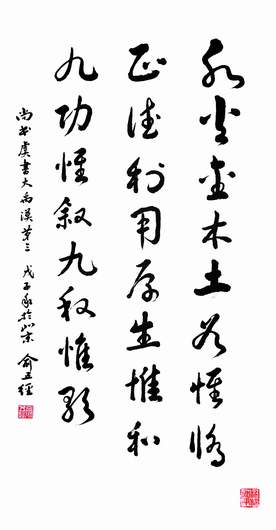 水火金木土谷惟修
正德利用厚生惟和
九功惟叙九叙惟歌
尚书虞书大禹谟第三 戊子承于北京 俞正经